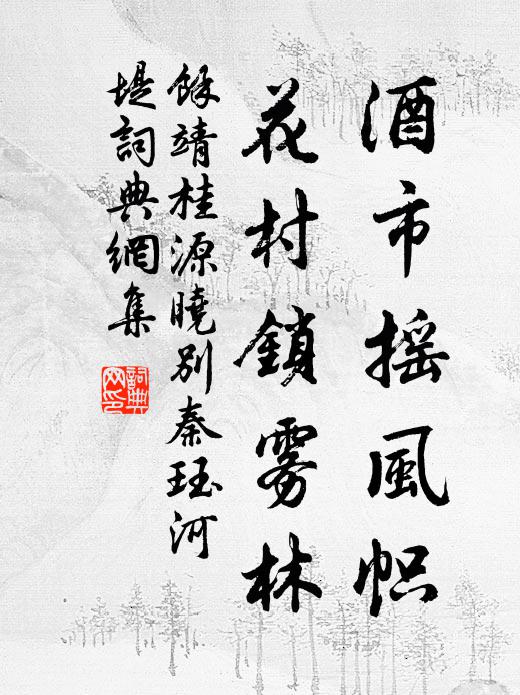 酒市摇風帜
花村鎖雾林
餘靖桂源曉別秦珏河
堤詞典網集
詞典
网印